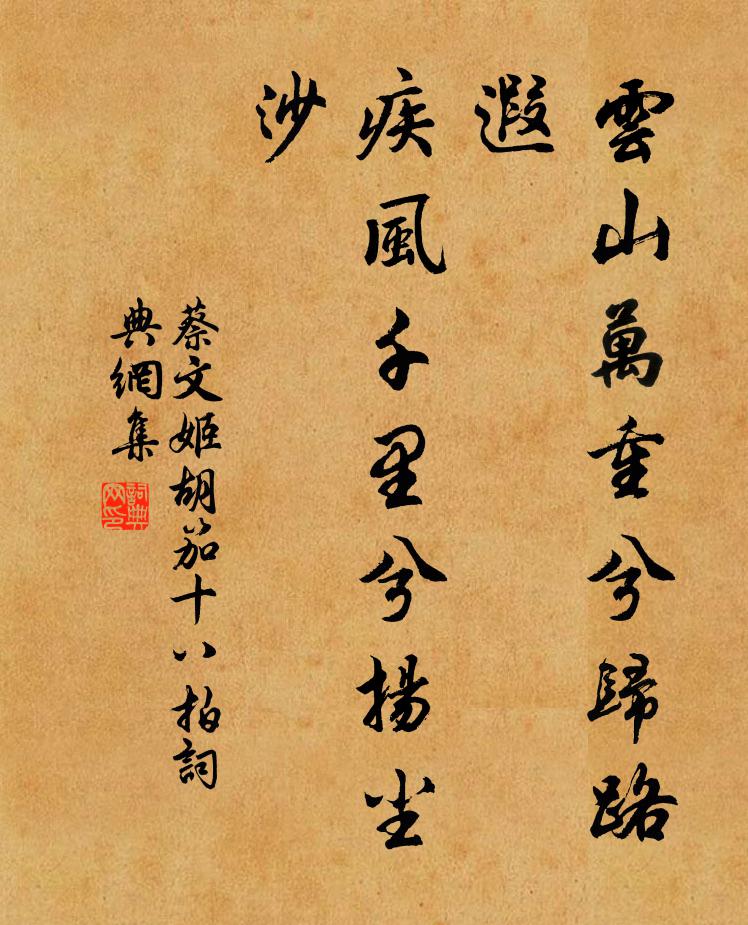 雲山萬重兮歸路
遐
疾風千里兮揚尘
沙
蔡文姬胡笳十八拍詞
典網集
詞典
网印